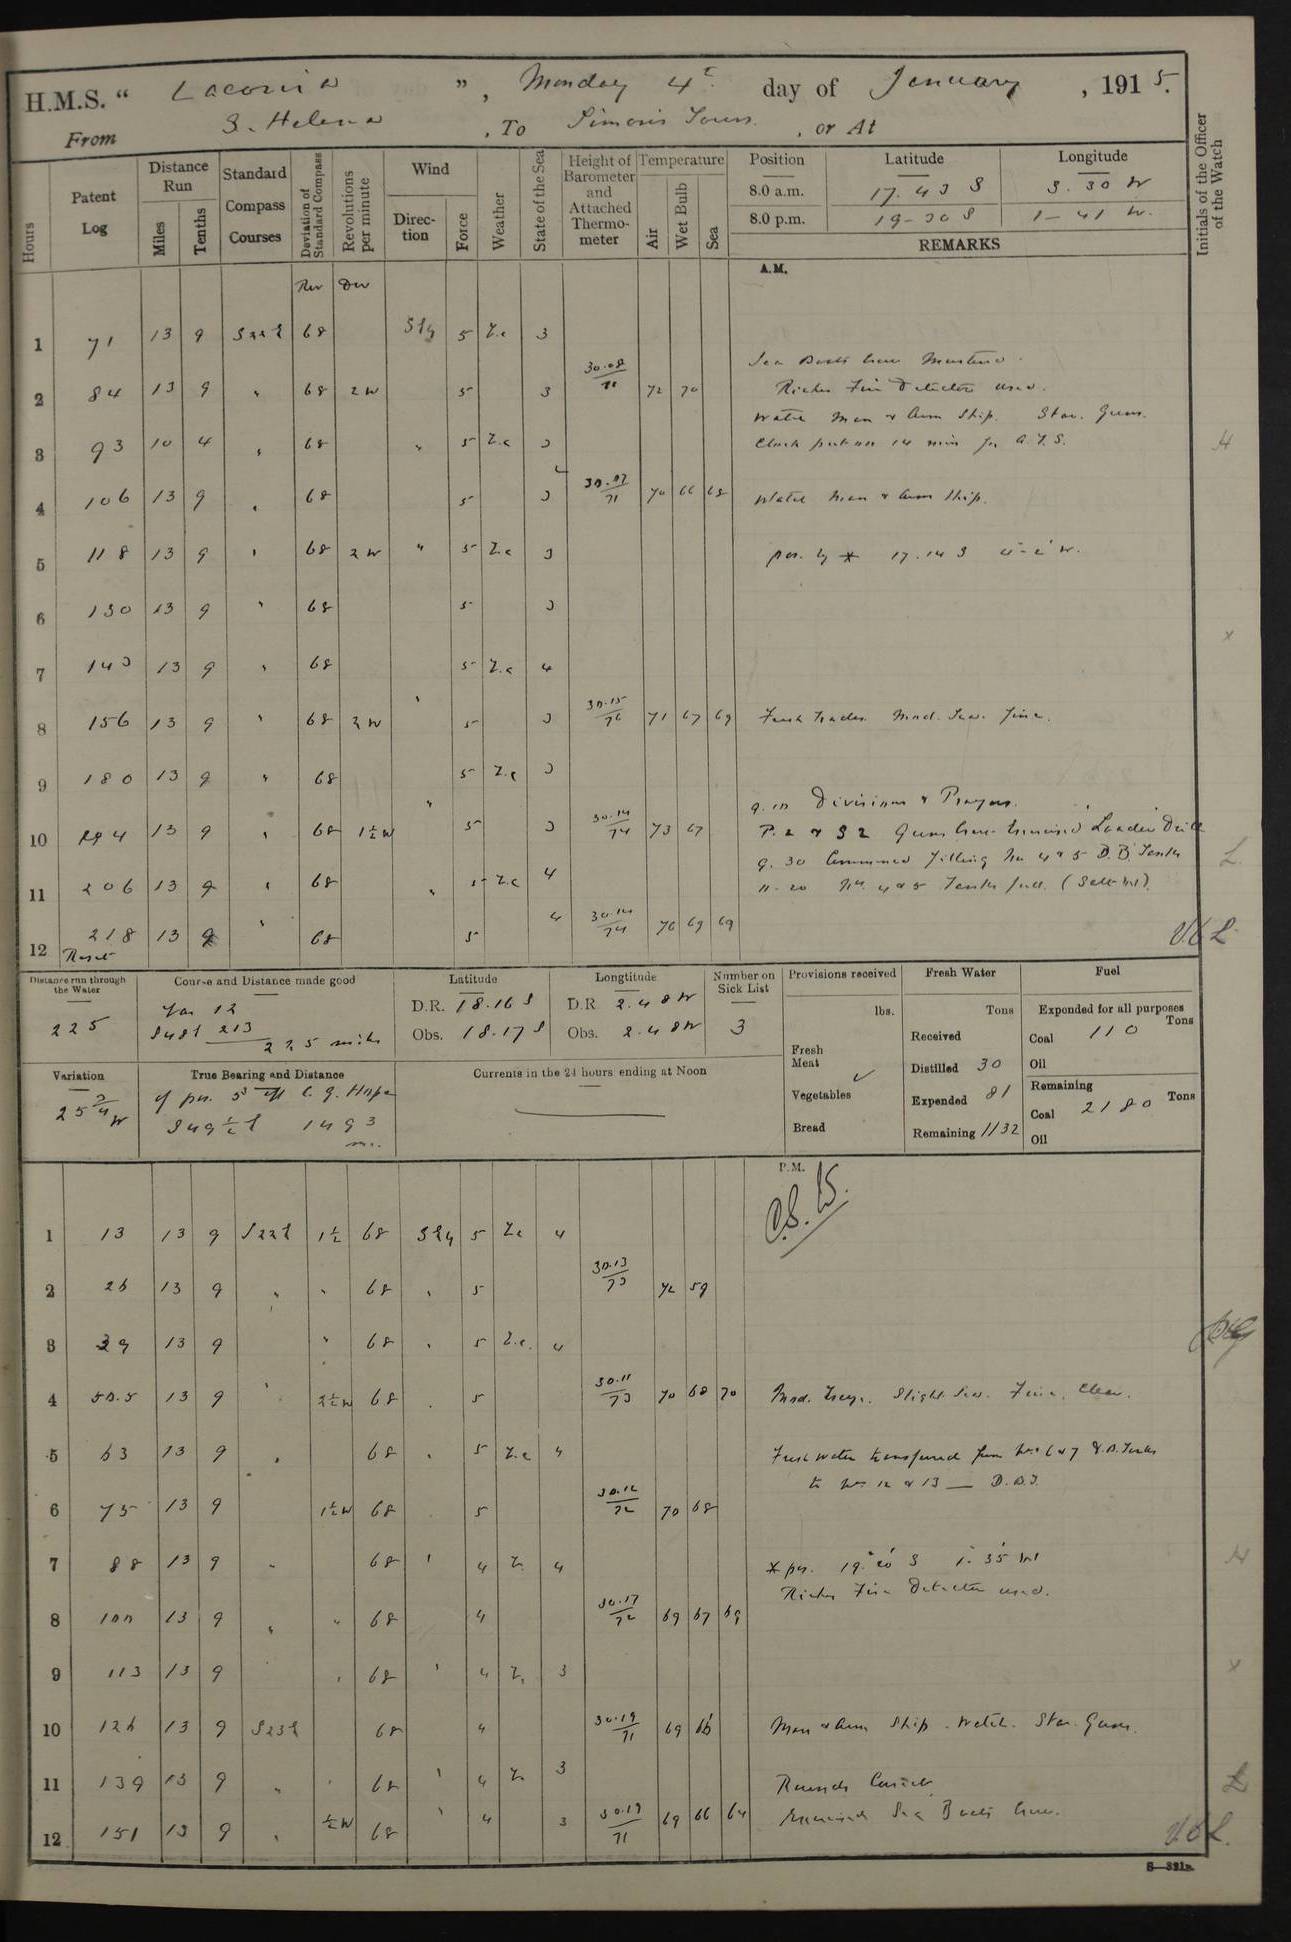 H.M.S. " Laconia ", Monday 4th day of January, 1915.
From S. Helena, To Simons Town, or At
Hours
Patent Log
Distance Run
Miles
Tenths
Standard Compass Courses
Deviation of Standard Compass
Revolutions per minute
Wind
Direction
Force
Weather
State of the Sea
Height of Barometer and Attached Thermometer
Temperature
Air
Wet Bulb
Sea
Position Latitude Longitude
8.0 a.m. 17.43 S 3.30 W
8.0 p.m. 19-20 S 1-41 W.
REMARKS
Initials of the Officer of the Watch
A.M.
Rev Dev
1 71 13 9 S22E 68 SEly 5 Z.c 3
Sea Boats Crew Mustered.
30.08
2 84 13 9 " 68 2 W 5 3 71 72 70 Richs Fire Detector used.
Watch Man & Arm Ship. Star. Guns.
3 93 10 4 " 68 " 5 Z.c 3 Clock put on 14 min for A.T.S.
4 106 13 9 " 68 5 3 30.07 71 70 66 68 Watch Man & Arm Ship.
5 118 13 9 " 68 2 W " 5 Z.c 3 pos. by * 17.14 S
6 130 13 9 " 68 5 3
7 143 13 9 " 68 5 Z.c 4
8 156 13 9 " 68 2 W " 5 3 30.15 76 71 67 69 Fresh Trades. Mod. Sea. Fine.
9 180 13 9 " 68 5 Z.c 3
9.10 Divisions & Prayers.
10 194 13 9 " 68 1½ W " 5 3 30.14 74 73 67 P.2 & S2 Guns Crew exercised Loader Drill
9.30 Commenced filling No 4 & 5 D.B. Tanks
11 206 13 9 " 68 " 5 Z.c 4 11-20 Nos. 4 & 5 Tanks full. (Salt W)
12 218 13 9 " 68 5 4 30.14 74 76 69 69
Reset
Distance run through the Water
225
Course and Distance made good
Var 12
S48E 213
225 miles
Latitude
D.R. 18.16 S
Obs. 18.17 S
Longtitude
D.R. 2.48 W
Obs. 2.48 W
Number on Sick List
3
Provisions received
lbs.
Fresh Meat
Vegetables
Bread
Fresh Water
Tons
Received
Distilled 30
Expended 81
Remaining 1132
Fuel
Expended for all purposes
Tons
Coal 110
Oil
Remaining
Tons
Coal 2180
Oil
Variation
25¾ W
True Bearing and Distance
of pos. 5 off C. G. Hope
S49½E 1493
m.
Currents in the 24 hours ending at Noon
P.M.
1 13 13 9 S22E 1½ 68 SEly 5 Z.c 4
2 26 13 9 " " 68 " 5 30.13 73 72 59
3 39 13 9 " 68 " 5 Z.c. 4
4 50.5 13 9 " 2½W 68 5 30.11 73 70 68 70 Mod. Slight Sea. Fine. Clear.
5 63 13 9 " 68 " 5 Z.c 4 Fresh water transferred from Nos 6 & 7 D.B. Tanks
to Nos 12 & 13 — D.B.T.
6 75 13 9 1½W 68 5 30.12 72 70 68
7 88 13 9 " 68 " 4 Z. 4 * pos. 19°.20' S 1°.35' W
Richs Fire Detector used.
8 100 13 9 " " 68 4 30.17 72 69 67 69
9 113 13 9 " 68 " 4 Z. 3
10 126 13 9 S23E 68 4 30.19 71 69 66 Man & Arm Ship. Watch. Star. Guns.
11 139 13 9 " " 68 " 4 Z. 3 Rounds Correct.
12 151 13 9 " ½W 68 " 4 3 30.19 71 69 66 64 Exercised Sea Boats Crew.
S—321B.